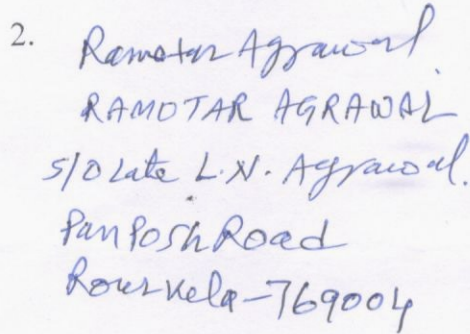 2. Ramotar Agrawal
RAMOTAR AGRAWAL
S/O Late L.N. Agrawal.
PanPosh Road
Rourkela-769004